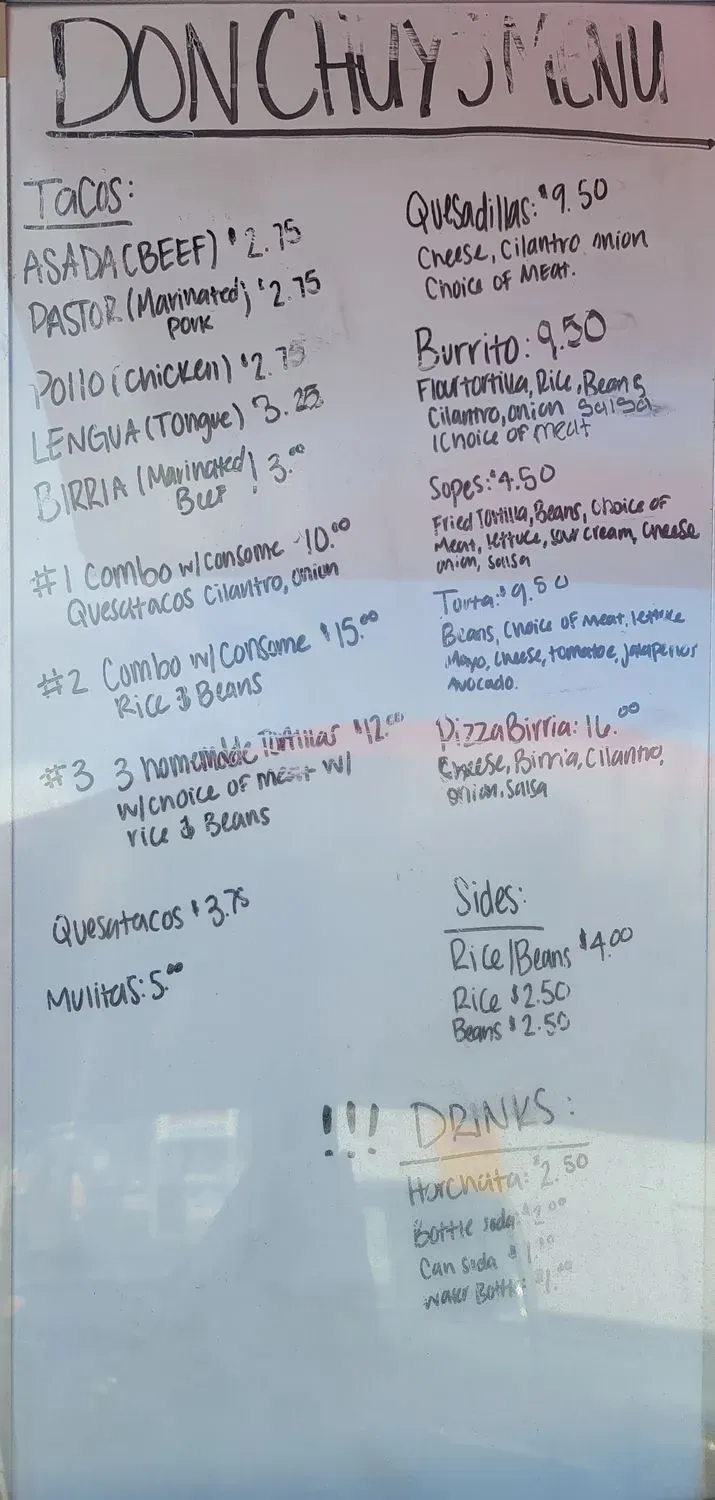 DON CHUY'S MENU
Tacos:
ASADA (BEEF) $2.75
PASTOR (Marinated) $2.75
Pork
Pollo (chicken) $2.75
LENGUA (Tongue) 3.25
BIRRIA (Marinated) 3.00
Beef
#1 Combo w/consome 10.00
Quesatacos Cilantro, onion
#2 Combo w/Consome $15.00
Rice & Beans
#3 3 homemade Tortillas $12.00
w/choice of meat w/
rice & Beans
Quesatacos $3.75
Mulitas: 5.00
Quesadillas: $9.50
Cheese, Cilantro onion
Choice of Meat.
Burrito: 9.50
Flour tortilla, Rice, Beans
Cilantro, onion salsa
Choice of meat
Sopes: $4.50
Fried Tortilla, Beans, Choice of
Meat, lettuce, sour cream, cheese
onion, salsa
Torta: $9.50
Beans, Choice of meat, lettuce
Mayo, cheese, tomatoe, jalapenos
Avocado.
Pizza Birria: 16.00
Cheese, Birria, Cilantro,
onion, salsa
Sides:
Rice/Beans $4.00
Rice $2.50
Beans $2.50
!!! DRINKS:
Horchata: $2.50
Bottle soda: $2.00
Can soda $1.
Water Bottle: $1.00